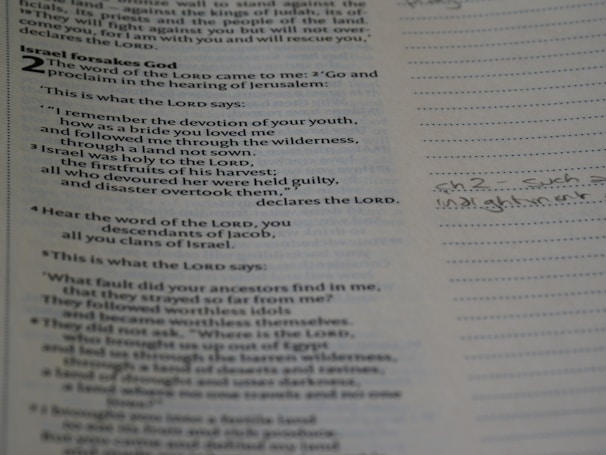 the land – against the kings of Judah, its of-
ficials, its priests and the people of the land.
¹⁹They will fight against you but will not over-
come you, for I am with you and will rescue you,'
declares the LORD.
Israel forsakes God
2 The word of the LORD came to me: ²'Go and
proclaim in the hearing of Jerusalem:
'This is what the LORD says:
'"I remember the devotion of your youth,
how as a bride you loved me
and followed me through the wilderness,
through a land not sown.
³Israel was holy to the LORD,
the firstfruits of his harvest;
all who devoured her were held guilty,
and disaster overtook them,"'
declares the LORD.
⁴Hear the word of the LORD, you
descendants of Jacob,
all you clans of Israel.
⁵This is what the LORD says:
'What fault did your ancestors find in me,
that they strayed so far from me?
They followed worthless idols
and became worthless themselves.
⁶They did not ask, "Where is the LORD,
who brought us up out of Egypt
and led us through the barren wilderness,
through a land of deserts and ravines,
a land of drought and utter darkness,
a land where no one travels and no one
lives?"
⁷I brought you into a fertile land
to eat its fruit and rich produce.
But you came and defiled my land
ch 2 - such a